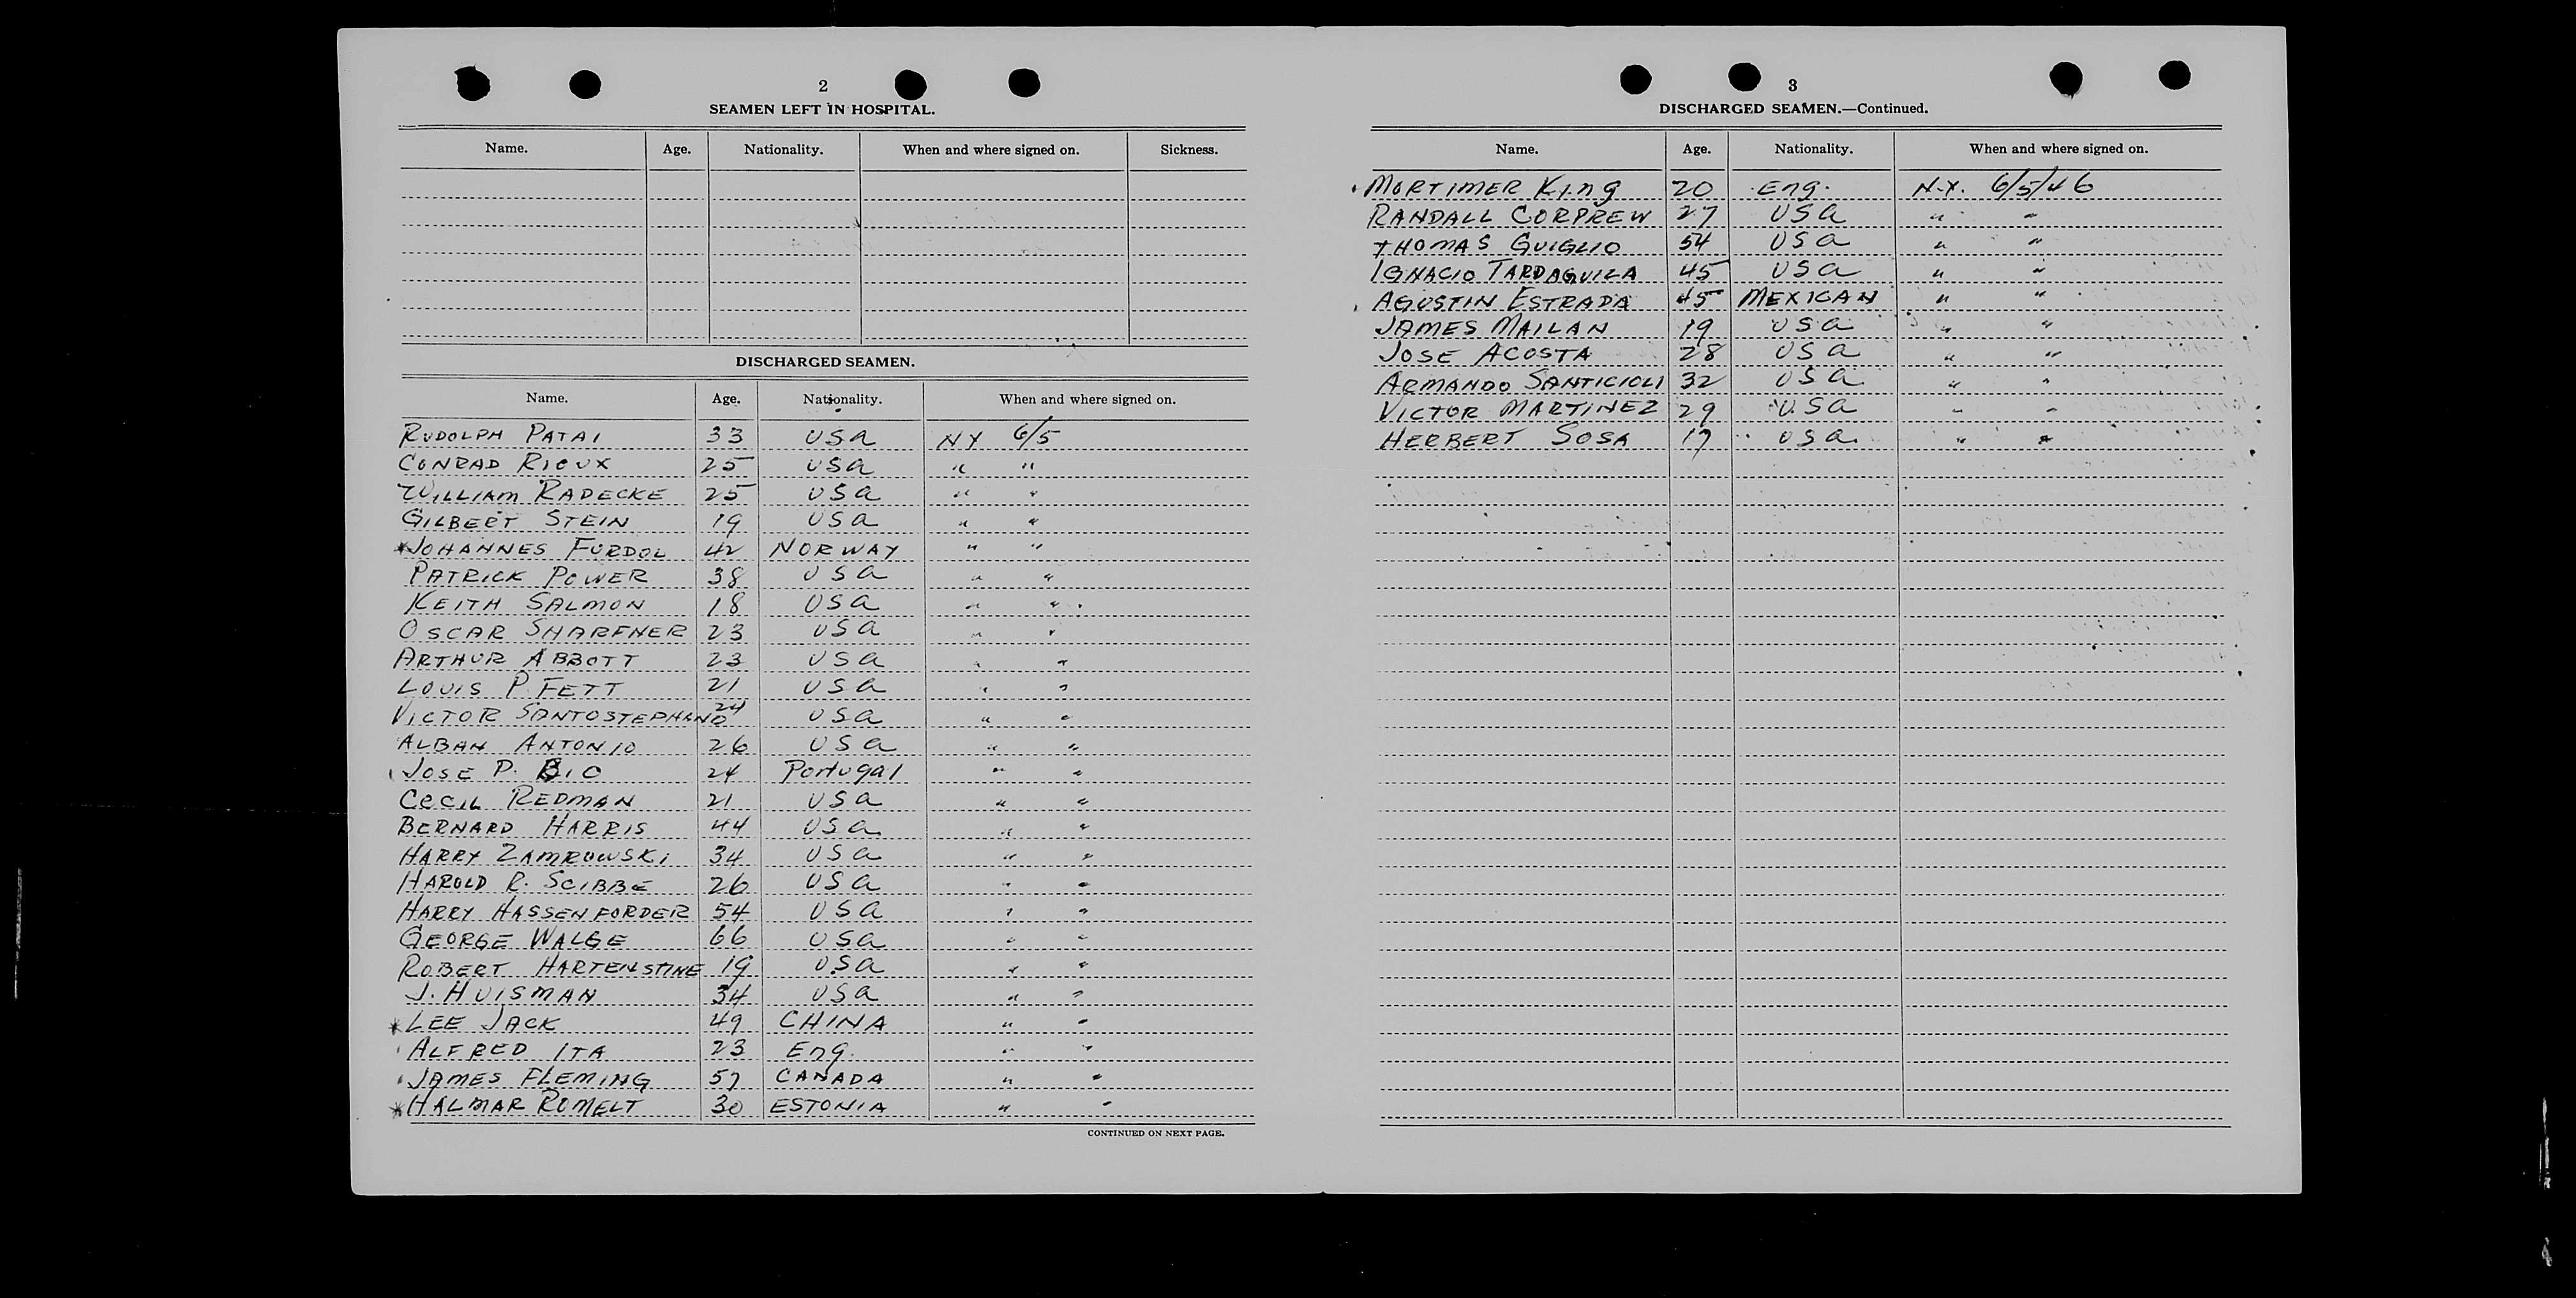 2
SEAMEN LEFT IN HOSPITAL.
Name. Age. Nationality. When and where signed on. Sickness.
DISCHARGED SEAMEN.
Name. Age. Nationality. When and where signed on.
RUDOLPH PATAI 33 USA NY 6/5
CONRAD RIOUX 25 USA " "
WILLIAM RADECKE 25 USA " "
GILBERT STEIN 19 USA " "
*JOHANNES FURDOL 42 NORWAY " "
PATRICK POWER 38 USA " "
KEITH SALMON 18 USA " "
OSCAR SHARFNER 23 USA " "
ARTHUR ABBOTT 23 USA " "
LOUIS P. FETT 21 USA " "
VICTOR SANTOSTEPHANO 24 USA " "
ALBAN ANTONIO 26 USA " "
JOSE P. BIO 24 Portugal " "
CECIL REDMAN 21 USA " "
BERNARD HARRIS 44 USA " "
HARRY ZAMROWSKI 34 USA " "
HAROLD R. SCIBBE 26 USA " "
HARRY HASSENFORDER 54 USA " "
GEORGE WALGE 66 USA " "
ROBERT HARTENSTINE 19 USA " "
J. HUISMAN 34 USA " "
*LEE JACK 49 CHINA " "
ALFRED ITA 23 Eng. " "
JAMES FLEMING 57 CANADA " "
*HALMAR ROMELT 30 ESTONIA " "
CONTINUED ON NEXT PAGE.
3
DISCHARGED SEAMEN.—Continued.
Name. Age. Nationality. When and where signed on.
MORTIMER King 20 Eng. N.Y. 6/5/46
RANDALL CORPREW 27 USA " "
THOMAS GUIGLIO 54 USA " "
IGNACIO TARDAGUILA 45 USA " "
AGUSTIN ESTRADA 45 MEXICAN " "
JAMES MAILAN 19 USA " "
JOSE ACOSTA 28 USA " "
ARMANDO SANTICIOLI 32 USA " "
VICTOR MARTINEZ 29 USA " "
HERBERT SOSA 17 USA " "